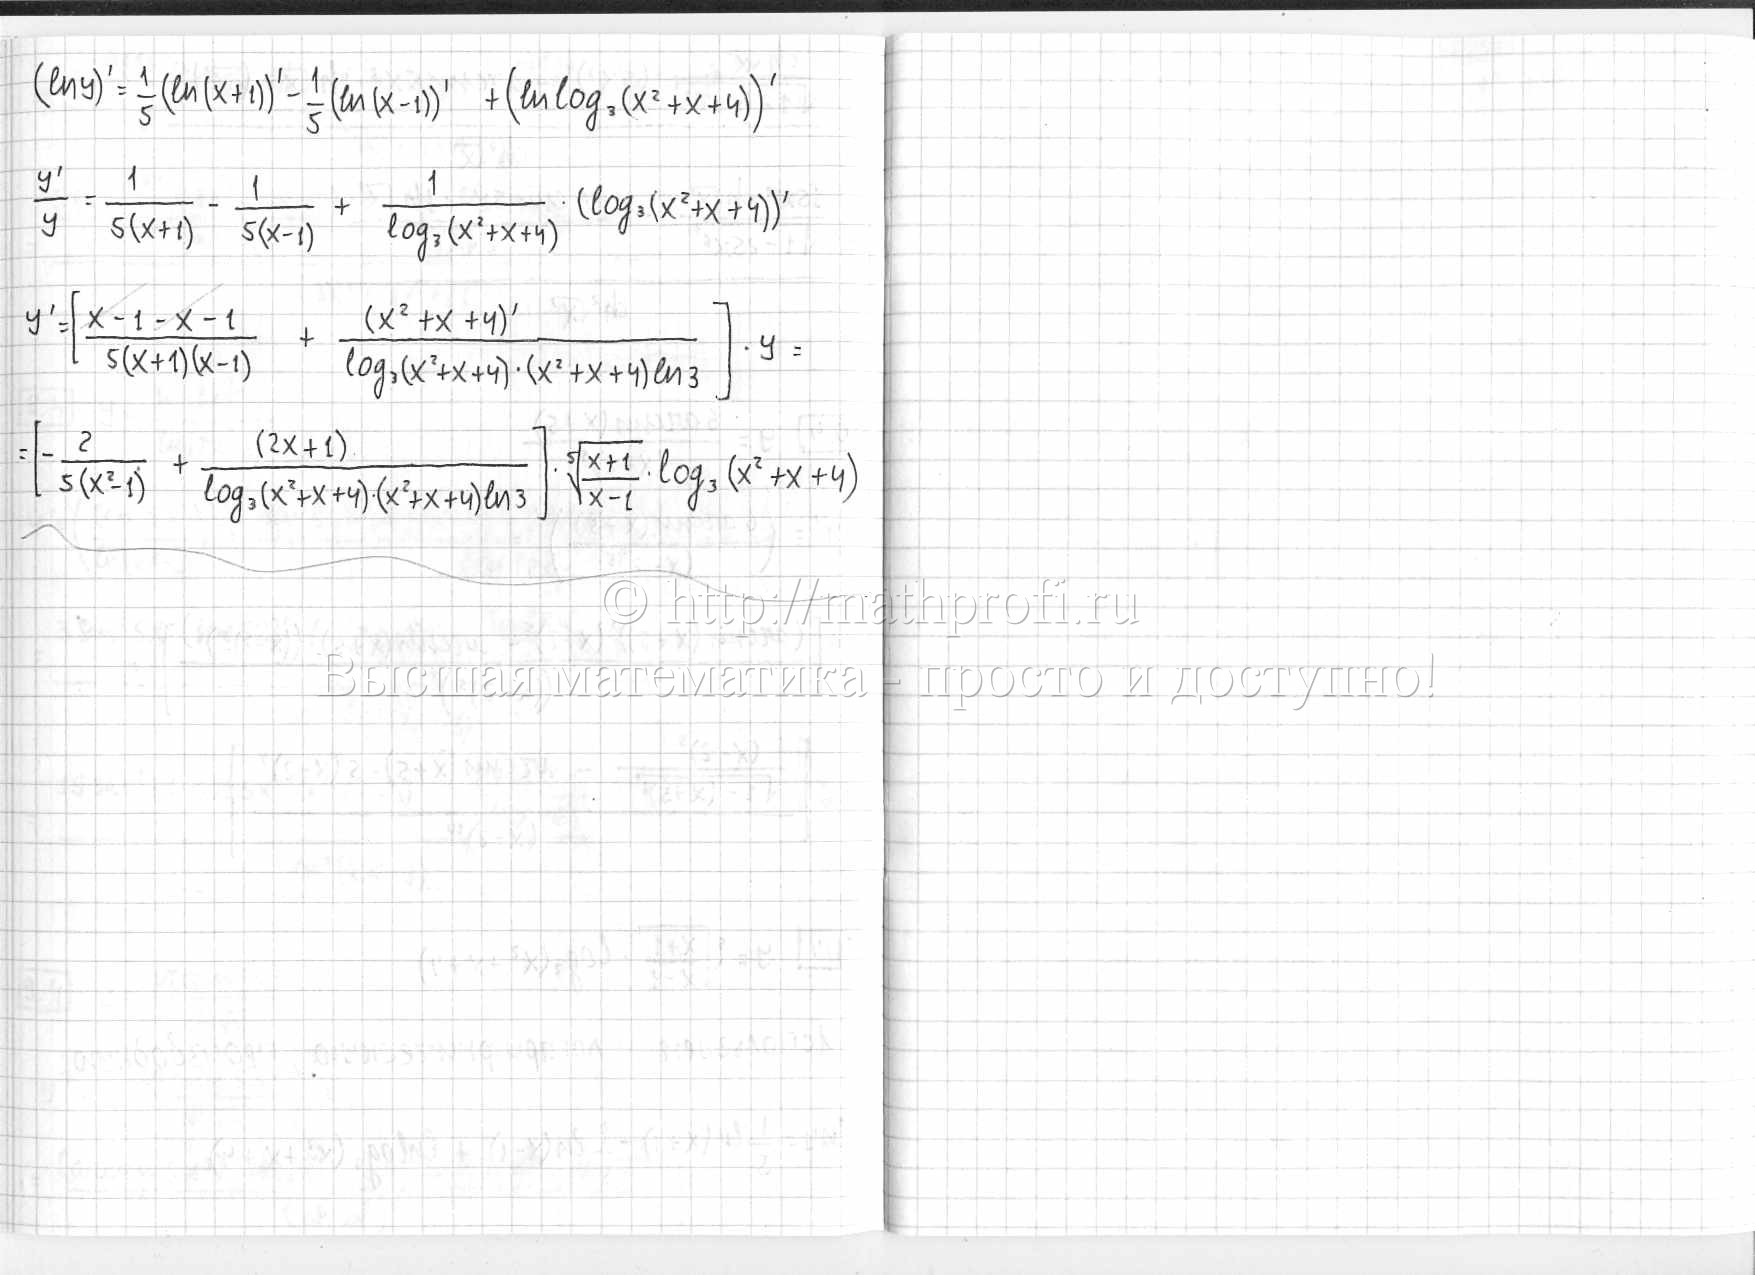 (ln y)' = 1/5 (ln(x+1))' - 1/5 (ln(x-1))' + (ln log₃(x²+x+4))'
y'/y = 1/(5(x+1)) - 1/(5(x-1)) + 1/(log₃(x²+x+4)) · (log₃(x²+x+4))'
y' = [(x-1-x-1)/(5(x+1)(x-1)) + (x²+x+4)'/(log₃(x²+x+4)·(x²+x+4)ln3)] · y =
= [-2/(5(x²-1)) + (2x+1)/(log₃(x²+x+4)·(x²+x+4)ln3)] · ⁵√((x+1)/(x-1)) · log₃(x²+x+4)
© http://mathprofi.ru
Высшая математика - просто и доступно!